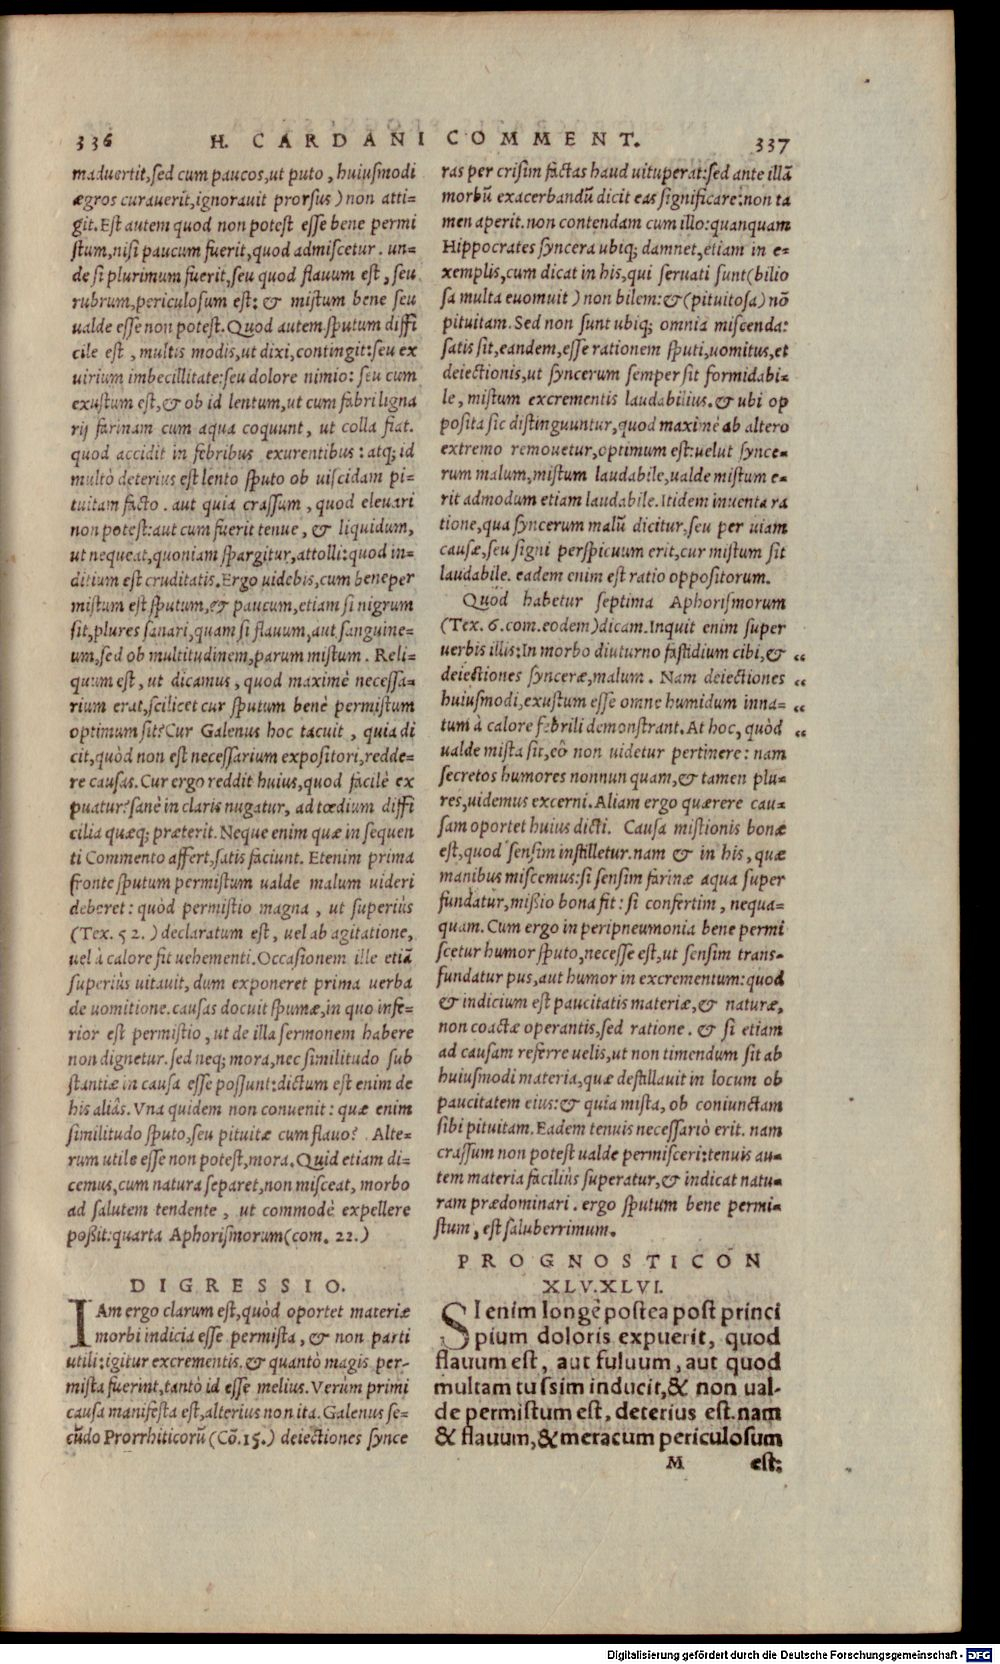 336 H. CARDANI COMMENT. 337
maduertit, sed cum paucos, ut puto, huiusmodi
ægros curauerit, ignorauit prorsus) non atti-
git. Est autem quod non potest esse bene permi
stum, nisi paucum fuerit, quod admiscetur. un-
de si plurimum fuerit, seu quod flauum est, seu
rubrum, periculosum est: & mistum bene seu
ualde esse non potest. Quod autem sputum diffi
cile est, multis modis, ut dixi, contingit: seu ex
uirium imbecillitate: seu dolore nimio: seu cum
exustum est, & ob id lentum, ut cum fabri ligna
rij farinam cum aqua coquunt, ut colla fiat.
quod accidit in febribus exurentibus: atq; id
multò deterius est lento sputo ob uiscidam pi-
tuitam facto. aut quia crassum, quod eleuari
non potest: aut cum fuerit tenue, & liquidum,
ut nequeat, quoniam spargitur, attolli: quod in-
ditium est cruditatis. Ergo uidebis, cum bene per
mistum est sputum, & paucum, etiam si nigrum
sit, plures sanari, quam si flauum, aut sanguine-
um, sed ob multitudinem, parum mistum. Reli-
quum est, ut dicamus, quod maximè necessa-
rium erat, scilicet cur sputum benè permistum
optimum sit? Cur Galenus hoc tacuit, quia di
cit, quòd non est necessarium expositori, redde-
re causas. Cur ergo reddit huius, quod facilè ex
puatur? sanè in claris nugatur, ad tœdium diffi
cilia quæq; præterit. Neque enim quæ in sequen
ti Commento affert, satis faciunt. Etenim prima
fronte sputum permistum ualde malum uideri
deberet: quòd permistio magna, ut superiùs
(Tex. 52.) declaratum est, uel ab agitatione,
uel à calore fit uehementi. Occasionem ille etiā
superiùs uitauit, dum exponeret prima uerba
de uomitione. causas docuit spumæ, in quo infe-
rior est permistio, ut de illa sermonem habere
non dignetur. sed neq; mora, nec similitudo sub
stantiæ in causa esse possunt: dictum est enim de
his aliâs. Vna quidem non conuenit: quæ enim
similitudo sputo, seu pituitæ cum flauo? Alte-
rum utile esse non potest, mora. Quid etiam di-
cemus, cum natura separet, non misceat, morbo
ad salutem tendente, ut commodè expellere
possit: quarta Aphorismorum (com. 22.)
DIGRESSIO.
IAm ergo clarum est, quòd oportet materiæ
morbi indicia esse permista, & non parti
utili: igitur excrementis. & quantò magis per-
mista fuerint, tantò id esse melius. Verùm primi
causa manifesta est, alterius non ita. Galenus se-
cūdo Prorrhiticorū (Cō. 15.) deiectiones synce
ras per crisim factas haud uituperat: sed ante illā
morbū exacerbandū dicit eas significare: non ta
men aperit. non contendam cum illo: quanquam
Hippocrates syncera ubiq; damnet, etiam in e-
xemplis, cum dicat in his, qui seruati sunt (bilio
sa multa euomuit) non bilem: & (pituitosa) nō
pituitam. Sed non sunt ubiq; omnia miscenda:
satis sit, eandem, esse rationem sputi, uomitus, et
deiectionis, ut syncerum semper sit formidabi-
le, mistum excrementis laudabilius. & ubi op
posita sic distinguuntur, quod maximè ab altero
extremo remouetur, optimum est: uelut synce-
rum malum, mistum laudabile, ualde mistum e-
rit admodum etiam laudabile. Itidem inuenta ra
tione, qua syncerum malū dicitur, seu per uiam
causæ, seu signi perspicuum erit, cur mistum sit
laudabile. eadem enim est ratio oppositorum.
Quod habetur septima Aphorismorum
(Tex. 6. com. eodem) dicam. Inquit enim super
uerbis illis: In morbo diuturno fastidium cibi, & „
deiectiones synceræ, malum. Nam deiectiones „
huiusmodi, exustum esse omne humidum inna- „
tum à calore febrili demonstrant. At hoc, quòd „
ualde mista sit, eò non uidetur pertinere: nam
secretos humores nonnunquam, & tamen plu-
res, uidemus excerni. Aliam ergo quærere cau-
sam oportet huius dicti. Causa mistionis bonæ
est, quod sensim instilletur. nam & in his, quæ
manibus miscemus: si sensim farinæ aqua super
fundatur, mißio bona fit: si confertim, nequa-
quam. Cum ergo in peripneumonia bene permi
scetur humor sputo, necesse est, ut sensim trans-
fundatur pus, aut humor in excrementum: quod
& indicium est paucitatis materiæ, & naturæ,
non coactæ operantis, sed ratione. & si etiam
ad causam referre uelis, ut non timendum sit ab
huiusmodi materia, quæ destillauit in locum ob
paucitatem eius: & quia mista, ob coniunctam
sibi pituitam. Eadem tenuis necessariò erit. nam
crassum non potest ualde permisceri: tenuis au-
tem materia faciliùs superatur, & indicat natu-
ram prædominari. ergo sputum bene permi-
stum, est saluberrimum.
PROGNOSTICON
XLV. XLVI.
SI enim longè postea post princi
pium doloris expuerit, quod
flauum est, aut fuluum, aut quod
multam tussim inducit, & non ual-
de permistum est, deterius est. nam
& flauum, & meracum periculosum
M est:
Digitalisierung gefördert durch die Deutsche Forschungsgemeinschaft - DFG